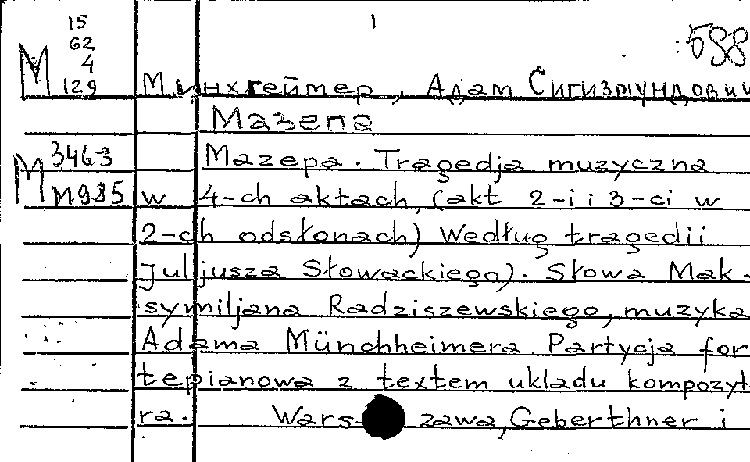 15
62
4
129
М
1
588
Минхгеймер, Адам Сигизмундович
Мазепа
М 3463
М985
Mazepa. Tragedja muzyczna
w 4-ch aktach, (akt 2-i i 3-ci w
2-ch odsłonach) Według tragedii
Juljusza Słowackiego). Słowa Mak-
symiljana Radziszewskiego, muzyka
Adama Münchheimera Partycja for
tepianowa z textem ukladu kompozyt
ra. Wars zawa, Geberthner i